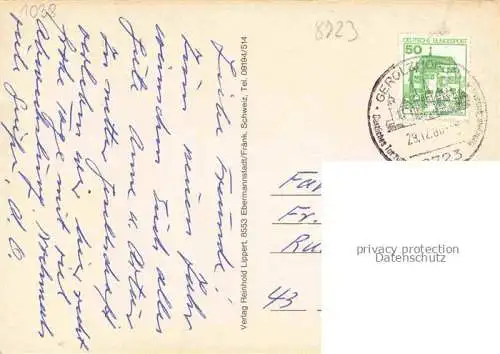 1038
8723
DEUTSCHE BUNDESPOST
50
GEROLZHOFEN
29.12.80
8723
Liebe Freunde!
Zum neuen Jahr
wünschen Euch alles
Gute Anne u. Artur
In netter Gesellschaft
verleben wir hier recht
frohe Tage mit viel
Abwechslung. Nochmals
viele Grüße, A. O.
Verlag Reinhold Lippert, 8553 Ebermannstadt/Fränk. Schweiz, Tel. 09194/514
Fa
Fr.
Ru
43
privacy protection
Datenschutz